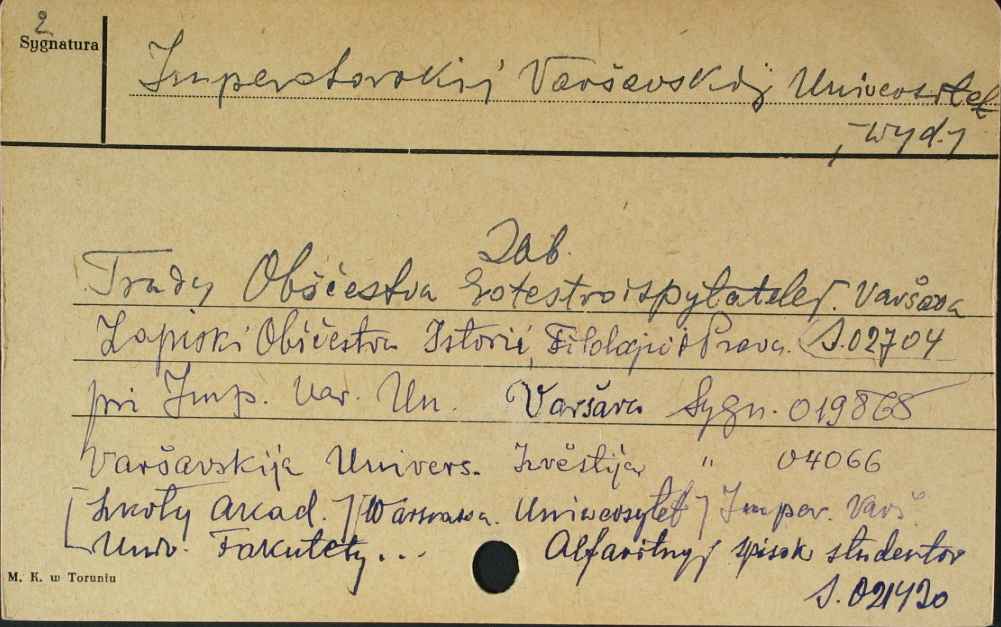 2
Sygnatura
Imperatorskij Varšavskij Universitet
, wyd.
Zob.
Trudy Obščestva Estestvoispytatelej. Varšava
Zapiski Obščestva Istorii, Filologii i Prava. S.02704
pri Imp. Var. Un. Varšava Sygn. 019868
Varšavskija Univers. Izvěstija " 04066
[Szkoły Akad.] [Warszawa. Uniwersytet] Imper. Varš.
Univ. Fakultety... Alfavitnyj spisok studentov
S. 021420
M. K. w Toruniu